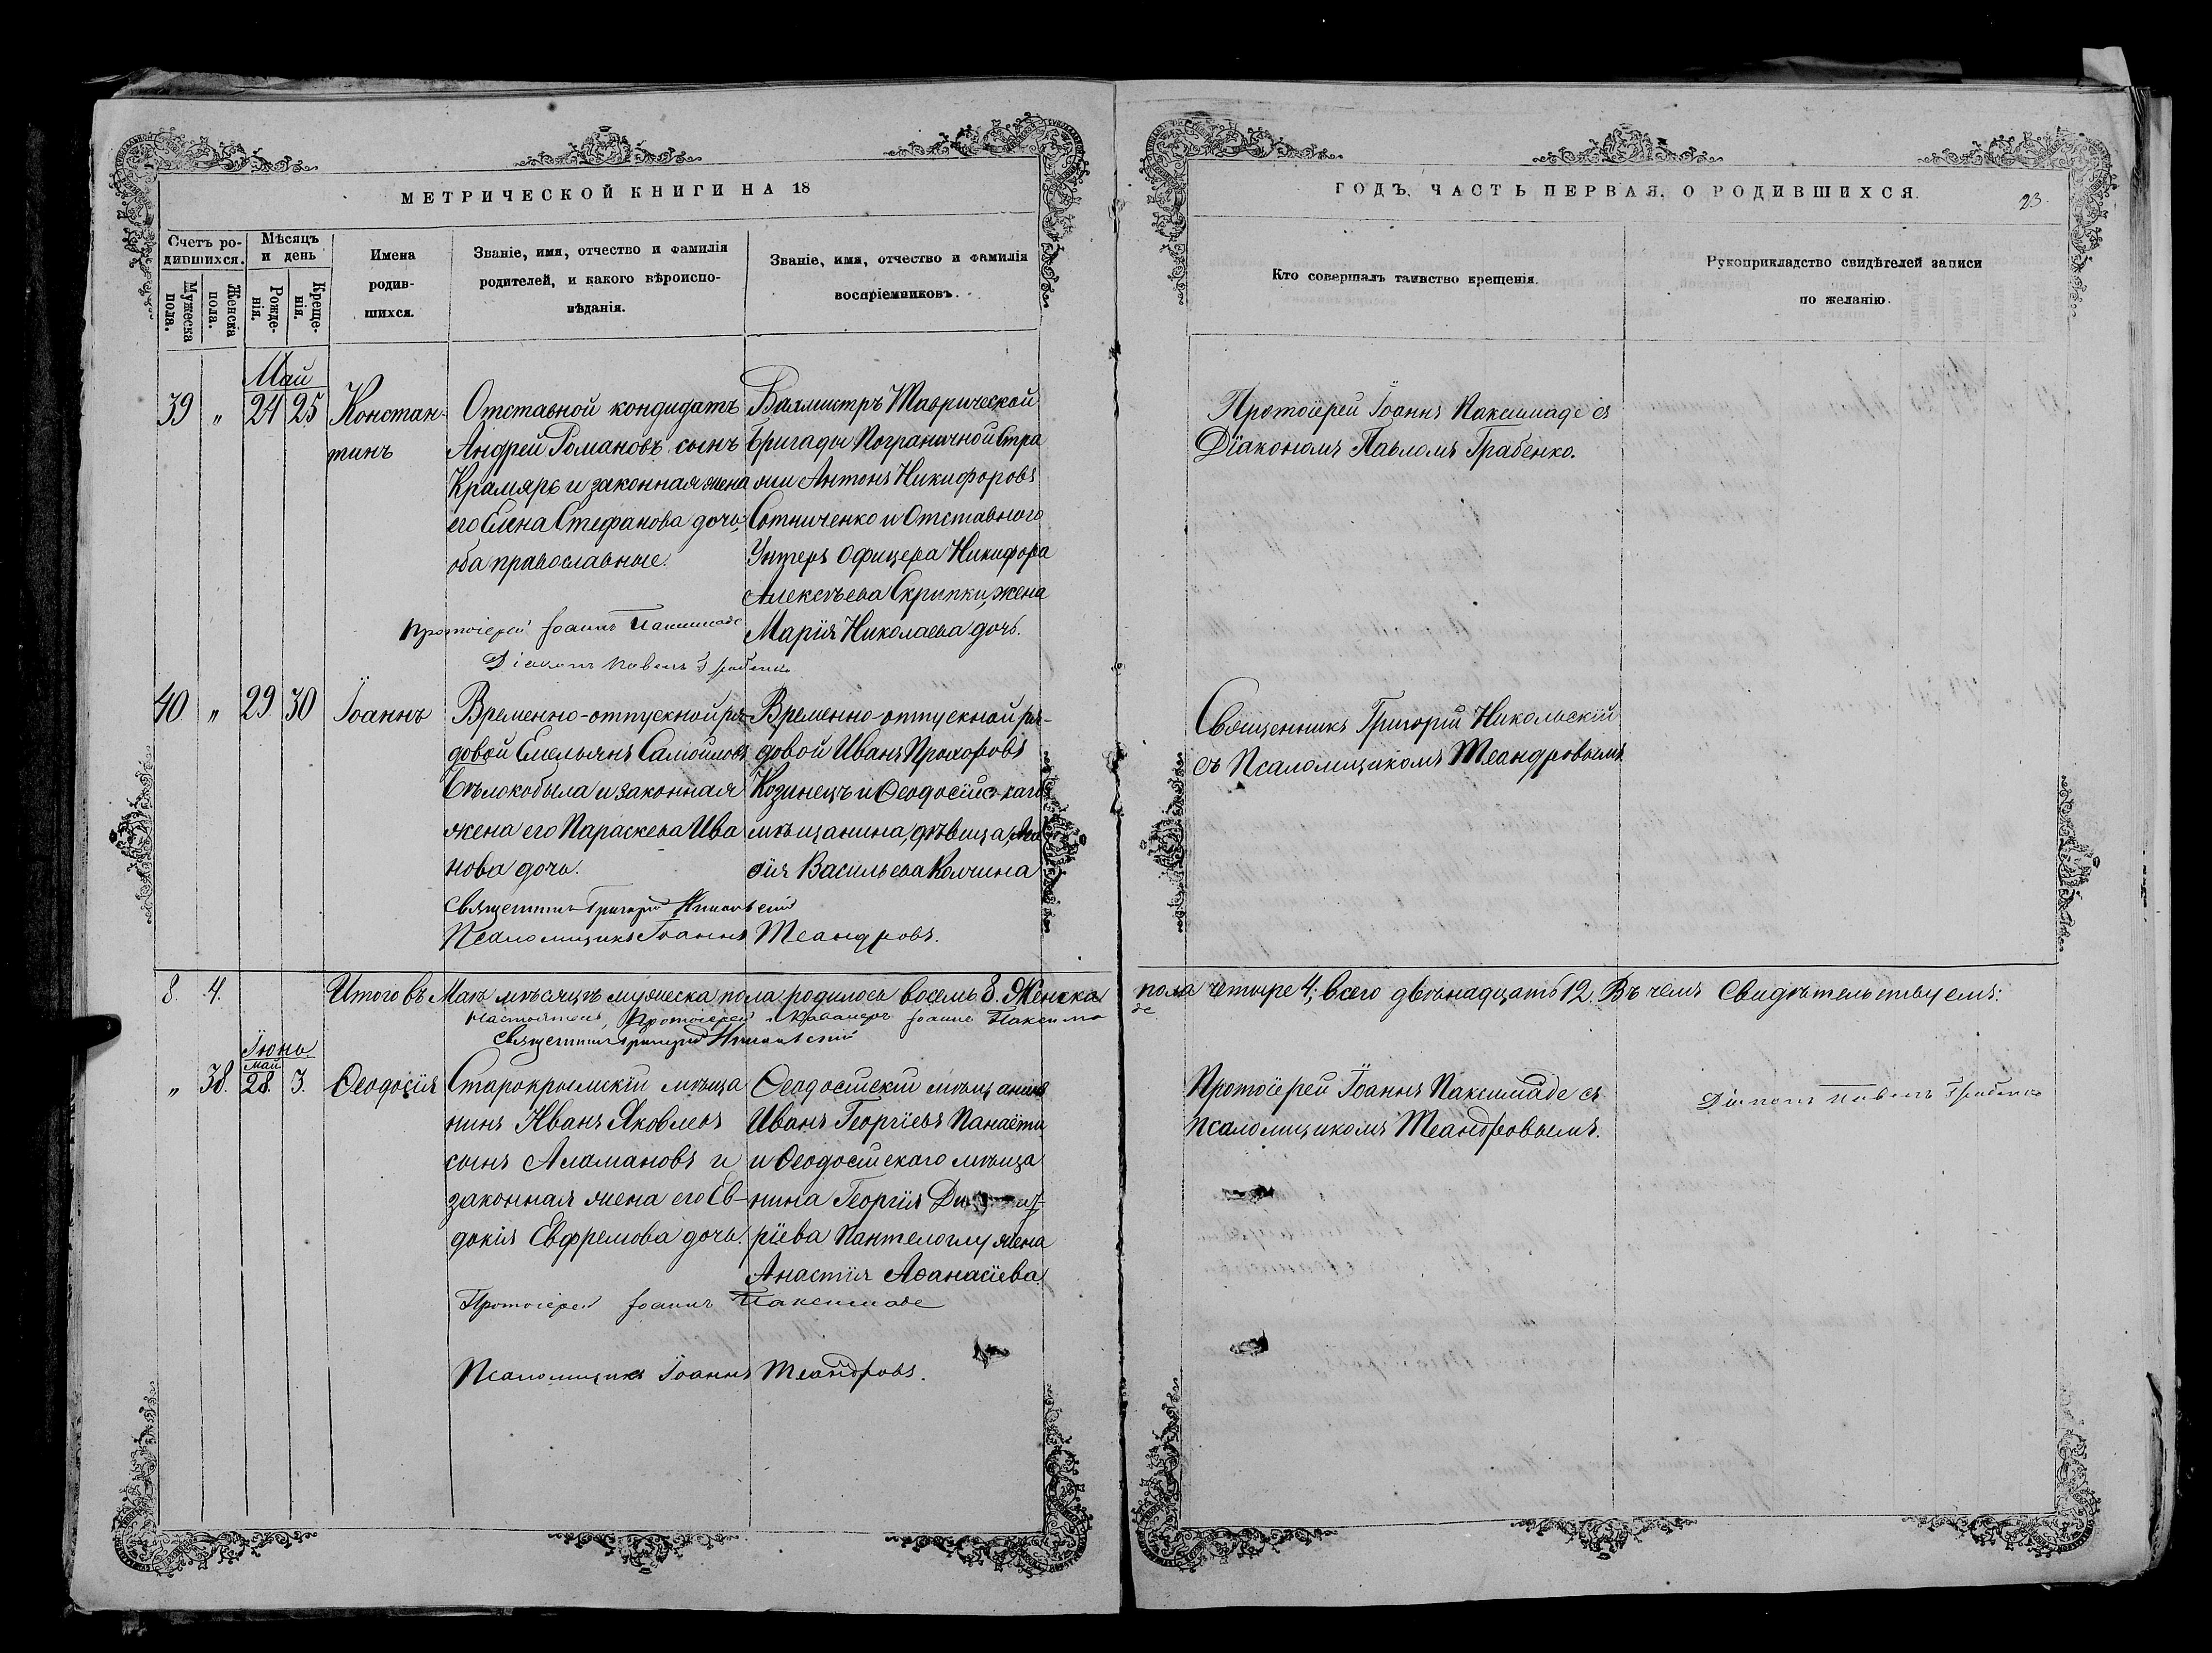 МЕТРИЧЕСКОЙ КНИГИ НА 18
Счетъ ро-
дившихся.
Мужеска
пола.
Женска
пола.
Мѣсяцъ
и день
Рожде-
нія.
Креще-
нія.
Имена
родив-
шихся.
Званіе, имя, отчество и фамилія
родителей, и какого вѣроиспо-
вѣданія.
Званіе, имя, отчество и фамилія
воспріемниковъ.
ГОДЪ, ЧАСТЬ ПЕРВАЯ, О РОДИВШИХСЯ.
23.
Кто совершалъ таинство крещенія.
Рукоприкладство свидѣтелей записи
по желанію.
Май
39 „ 24 25
Констан-
тинъ
Отставной кондидатъ
Андрей Романовъ сынъ
Крамярь и законная жена
его Елена Стефанова дочь,
оба православные.
Вахмистръ Таврической
бригады Пограничной Стра
жи Антонъ Никифоровъ
Сотниченко и Отставного
Унтеръ Офицера Никифора
Алексѣева Скрипки, жена
Марія Николаева дочь.
Протоіерей Іоаннъ Паксимаде съ
Діакономъ Павломъ Грабенко.
Протоіерей Іоаннъ Паксимаде
Діаконъ Павелъ Грабенко
40 „ 29 30
Іоаннъ
Временно-отпускной ря-
довой Емельянъ Самойловъ
Бѣлокобыла и законная
жена его Параскева Ива
нова дочь.
Временно-отпускной ря-
довой Иванъ Прохоровъ
Козинецъ и Ѳеодосійскаго
мѣщанина, дѣвица,
Васильева Колчина
Священникъ Григорій Никольскій
съ Псаломщикомъ Теандровымъ
Священникъ Григорій Никольскій
Псаломщикъ Іоаннъ Теандровъ.
8. 4.
Итого въ Маѣ мѣсяцѣ мужеска пола родилось восемь 8. Женска пола четыре 4; всего двѣнадцать 12. Въ чемъ свидѣтельствуемъ:
Настоятель, Протоіерей и Кавалеръ Іоаннъ Паксимаде
Священникъ Григорій Никольскій
Іюнь
Май
„ 38. 28. 3.
Ѳеодосія
Старокрымскій мѣща
нинъ Иванъ Яковлевъ
сынъ Аламановъ и
законная жена его Ев-
докія Евфремова дочь.
Ѳеодосійскій мѣщанинъ
Иванъ Георгіевъ Панаёти
и Ѳеодосійскаго мѣща
нина Георгія
ріева Пантелоглу жена
Анастія Аѳанасіева.
Протоіерей Іоаннъ Паксимаде съ
псаломщикомъ Теандровымъ.
Діаконъ Павелъ Грабенко
Протоіерей Іоаннъ Паксимаде
Псаломщикъ Іоаннъ Теандровъ.